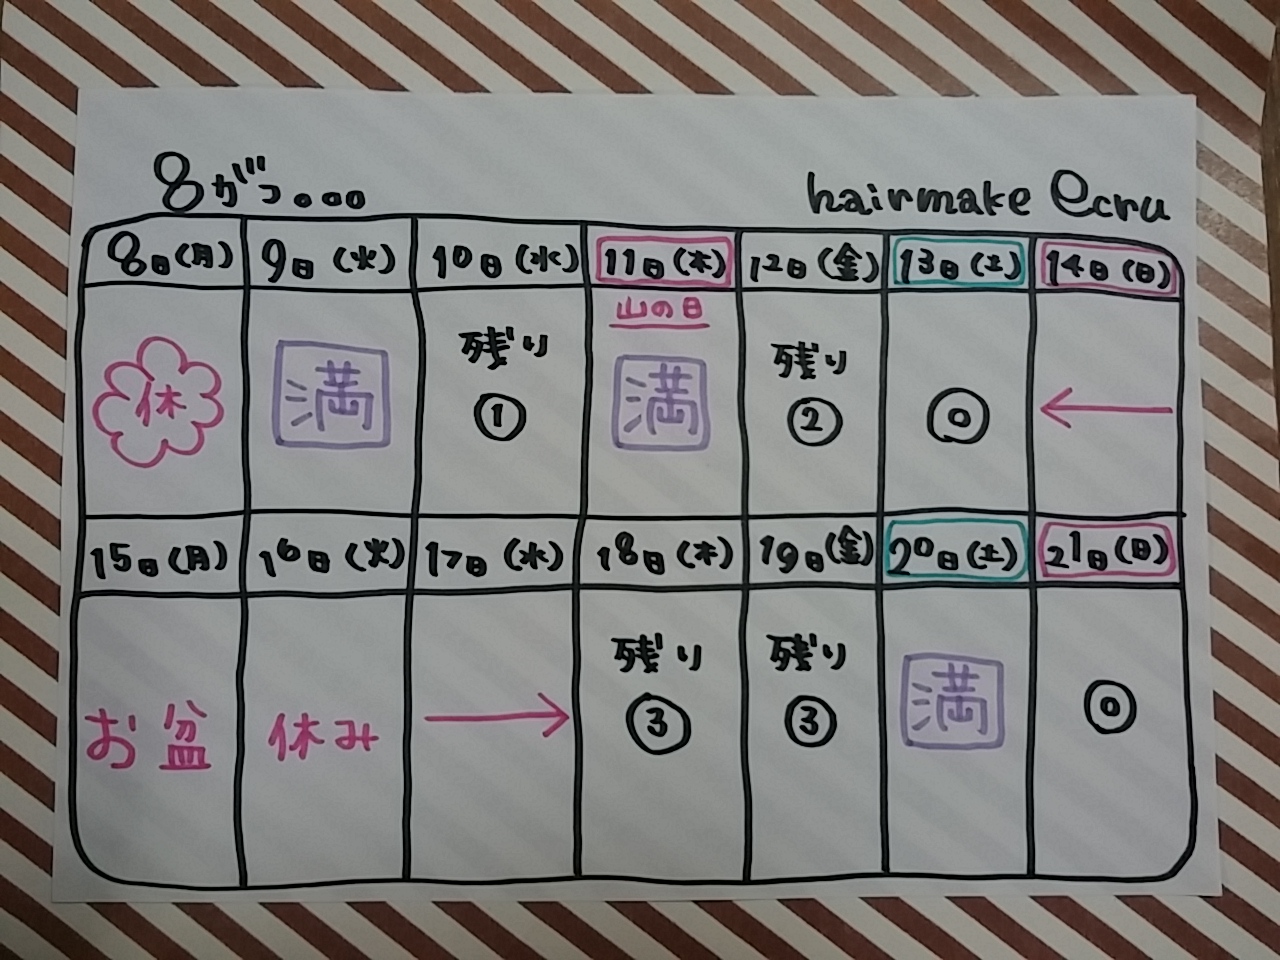 8がつ...
hairmake ecru
8日(月) 9日(火) 10日(水) 11日(木) 12日(金) 13日(土) 14日(日)
山の日
残り 残り
休 満 ① 満 ② ◎ ←
15日(月) 16日(火) 17日(水) 18日(木) 19日(金) 20日(土) 21日(日)
残り 残り
お盆 休み → ③ ③ 満 ◎